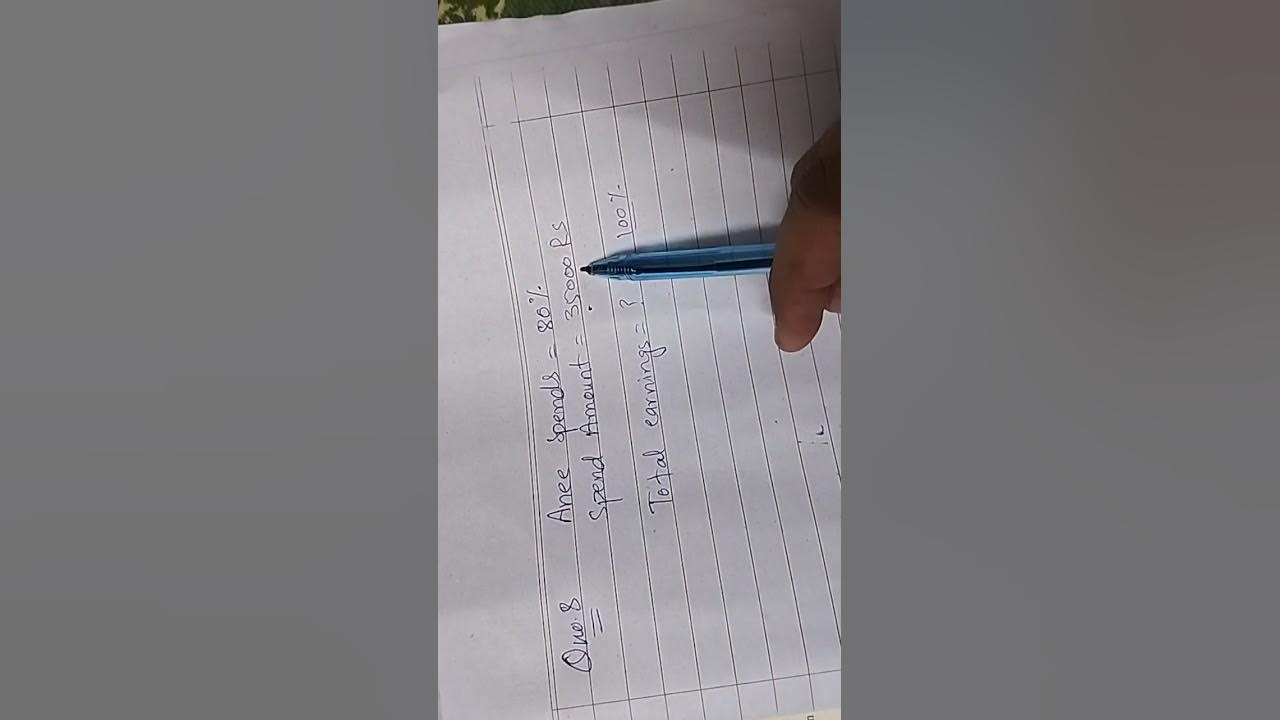 Q no. 8 Anee Spends = 80%
Spend Amount = 35000 Rs
Total earnings = ? 100%